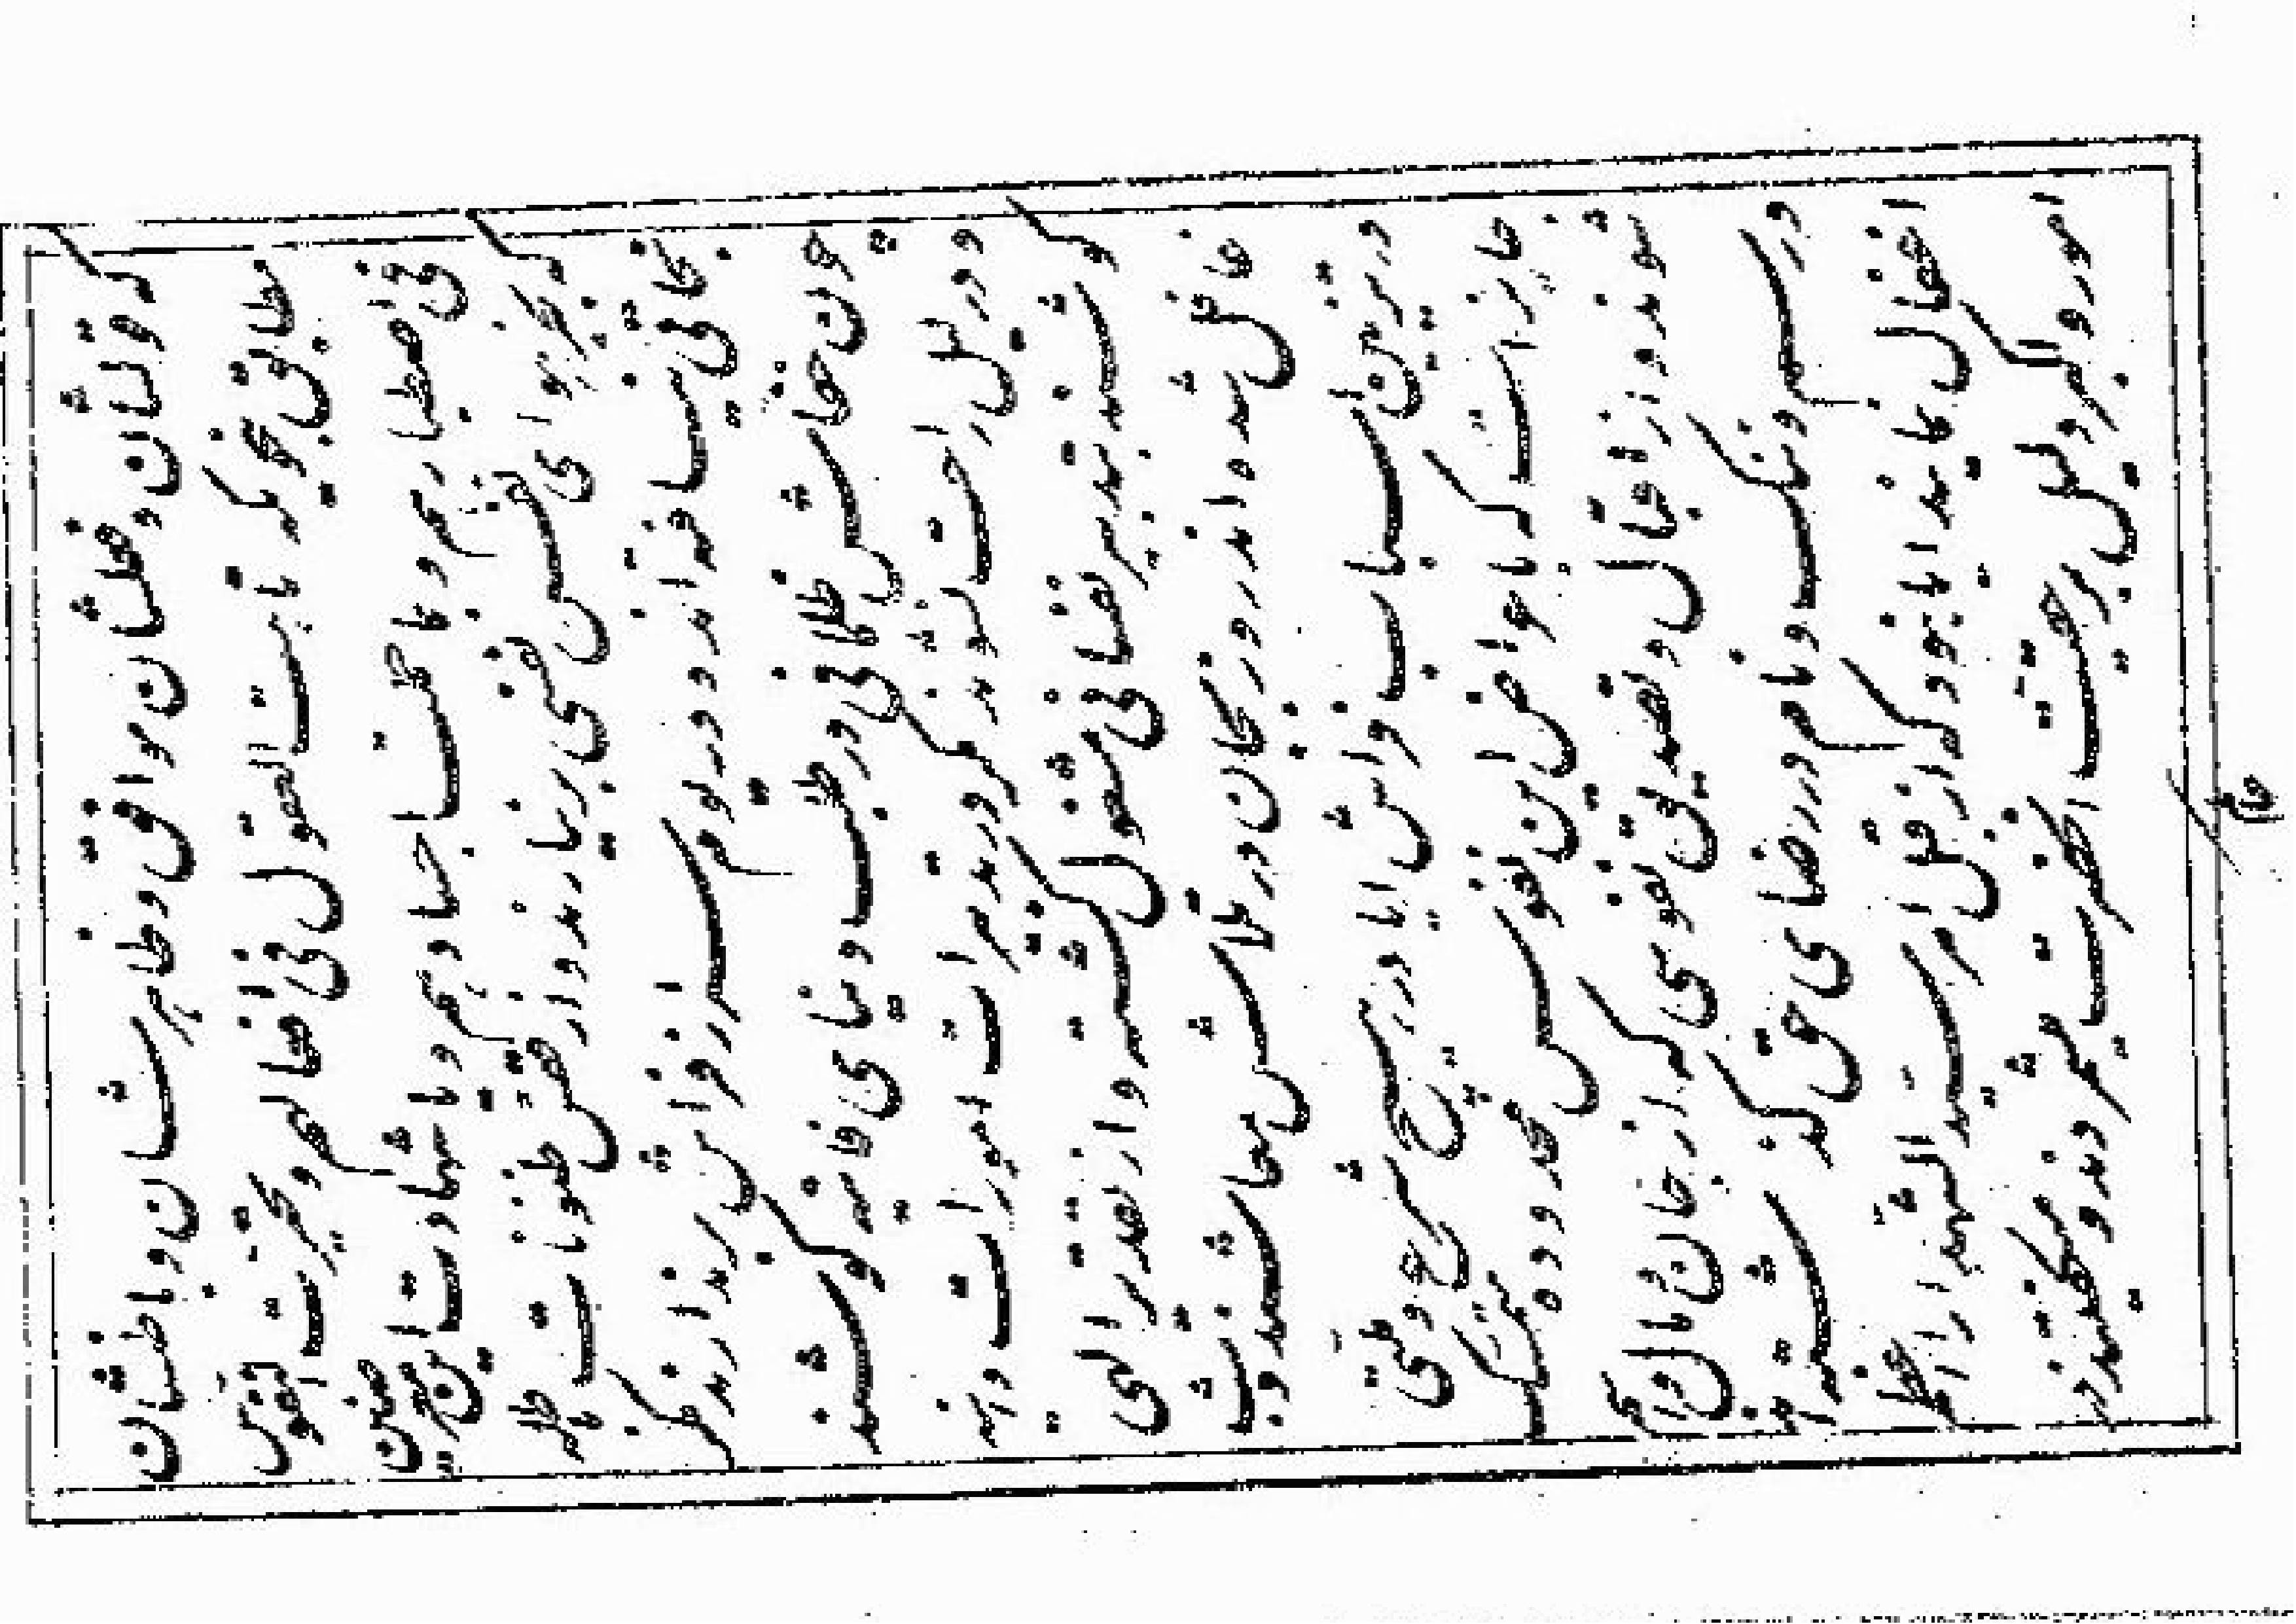 که قولشان و فعلشان موافق و ظاهرشان و باطنشان
مطابق بنحوی که تاهت العقول فی افعالهم و تحیرت النفوس
فی اصطبارهم و بما حملت اجسادهم و یا شهادت این معرضین
که بجز هوای نفس نفسی برنیارند و از قفس ظنونات باطله
نجاتی نیافته اند و در یوم سر از فراش برندارند مگر
چون خفاش ظلمانی در طلب دنیای فانیه کوشند
و در لیل راحت نشوند مگر در تدبیرات امورات دانیه
کوشند بتدبیر نفسانی مشغول گشته و از تقدیر الهی
غافل شده اند روز بجان در تلاش معاشند و شب
در تزیین اسباب فراش ایا در هیچ شرعی و ملتی
جایز است که باعراض این نفوس محدوده متمسک
شوند و از اقبال و تصدیق نفوسی که از جان و مال و اسم
و رسم و ننگ و نام در رضای حق گذشته اند
اغفال نمایند ایا نبود که از قبل امر سید الشهدا را اعظم
امور و اکبر دلیل بر حقیت انحضرت میشمردند و میگفتند در
عالم